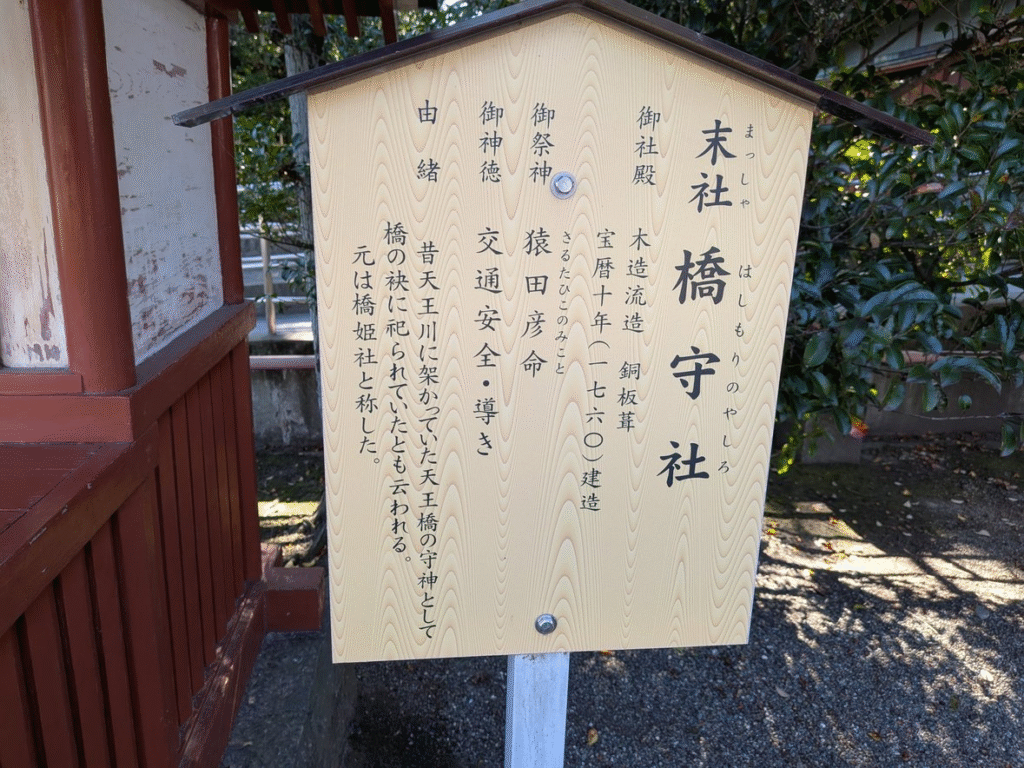 まっしや はしもりのやしろ
末社 橋守社
御社殿 木造流造 銅板葺
宝暦十年(一七六〇)建造
さるたひこのみこと
御祭神 猿田彦命
御神徳 交通安全・導き
由緒 昔天王川に架かっていた天王橋の守神として
橋の袂に祀られていたとも云われる。
元は橋姫社と称した。